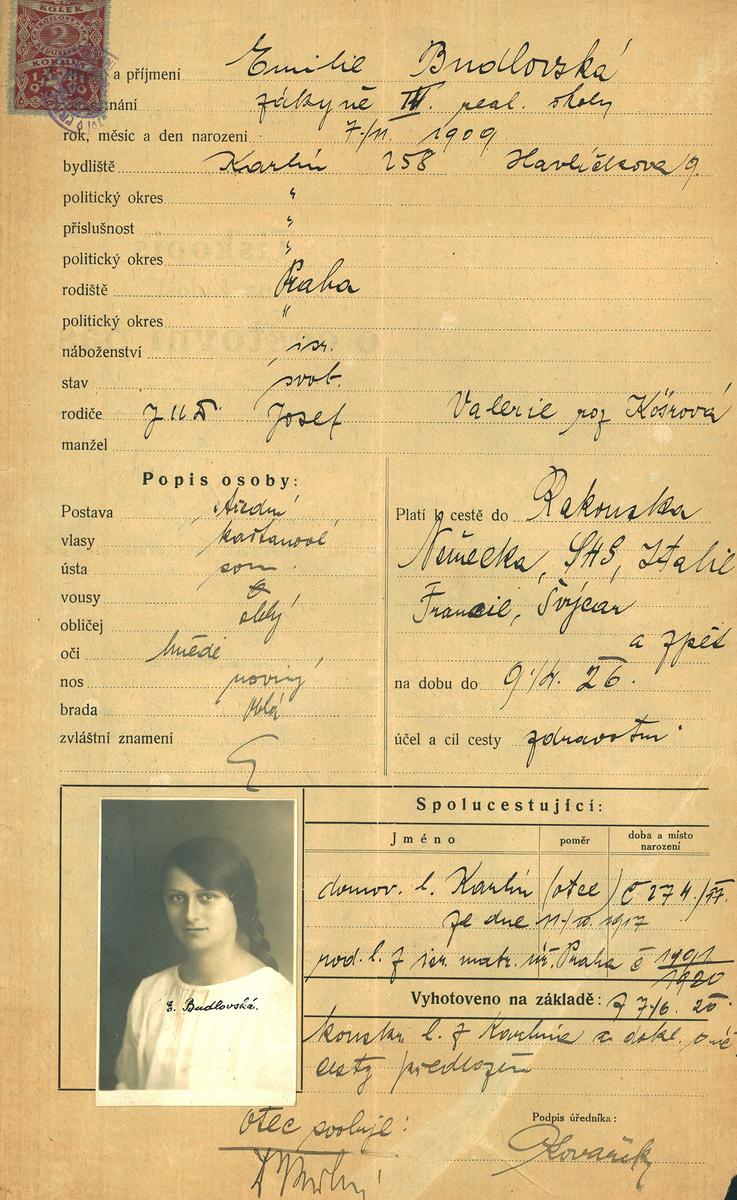 KOLEK
2
a příjmení Emilie Budlovská
žákyně III. real. školy
rok, měsíc a den narození 7./11. 1909
bydliště Karlín 258 Havlíčkova 9.
politický okres "
příslušnost "
politický okres "
rodiště Praha
politický okres "
náboženství isr.
stav svob.
rodiče JUD. Josef Valerie roz
manžel
Popis osoby:
Postava střední
vlasy kaštanové
ústa soum.
vousy
obličej oblý
oči hnědé
nos rovný
brada oblá
zvláštní znamení
Platí k cestě do Rakouska
Německa, SHS, Italie
Francie, Švýcar
a zpět
na dobu do 9./4. 26.
účel a cil cesty zdravotní
Spolucestující:
Jméno poměr doba a místo narození
domov. l. Karlín (otce) č 274/
ze dne 1917
rod. l. z isr. matr. úř. Praha č
1920
Vyhotoveno na základě: z 7./6. 20
konskr. l. z Karlína a dokl. o
cesty předložen
E. Budlovská.
otec svoluje:
Podpis úředníka: